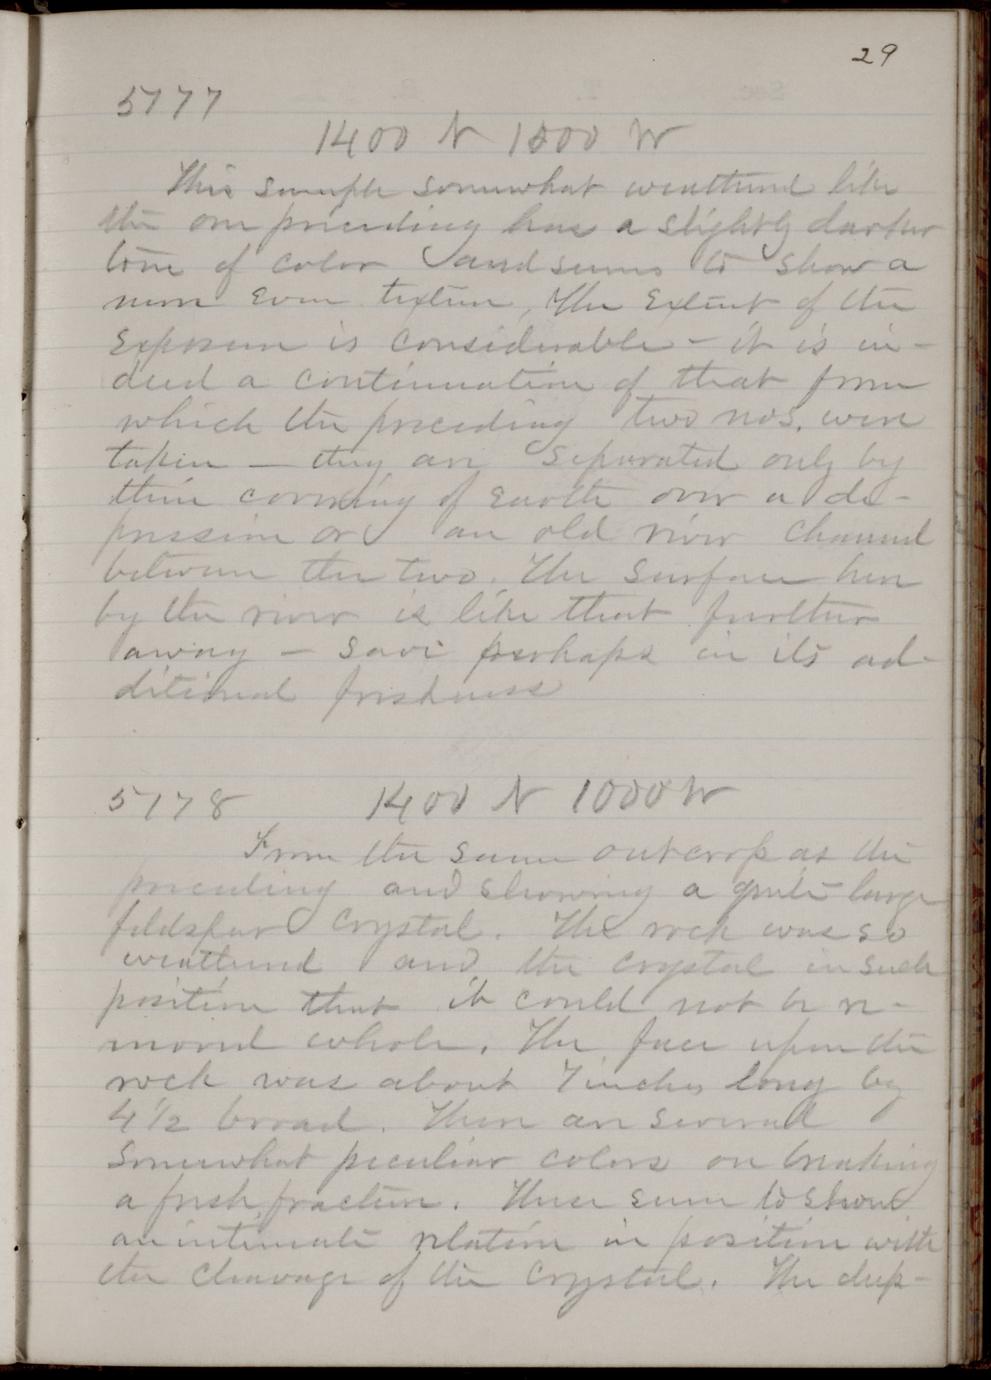 29
5177
1400 N 1000 W
This sample somewhat weathered like
the one preceding has a slightly darker
tone of color and seems to show a
more even texture, The extent of the
exposure is considerable - it is in-
deed a continuation of that from
which the preceding two nos. were
taken — they are separated only by
thin covering of earth over a de-
pression or an old river channel
between the two. The surface here
by the river is like that further
away - save perhaps in its ad-
ditional freshness
5178 1400 N 1000 W
From the same outcrop as the
preceding and showing a quite large
feldspar crystal. The rock was so
weathered and the crystal in such
position that it could not be re-
moved whole. The face upon the
rock was about 7 inches long by
4 1/2 broad. There are several
somewhat peculiar colors on breaking
a fresh fracture. These seem to show
an intimate relation in position with
the cleavage of the crystal. The deep-